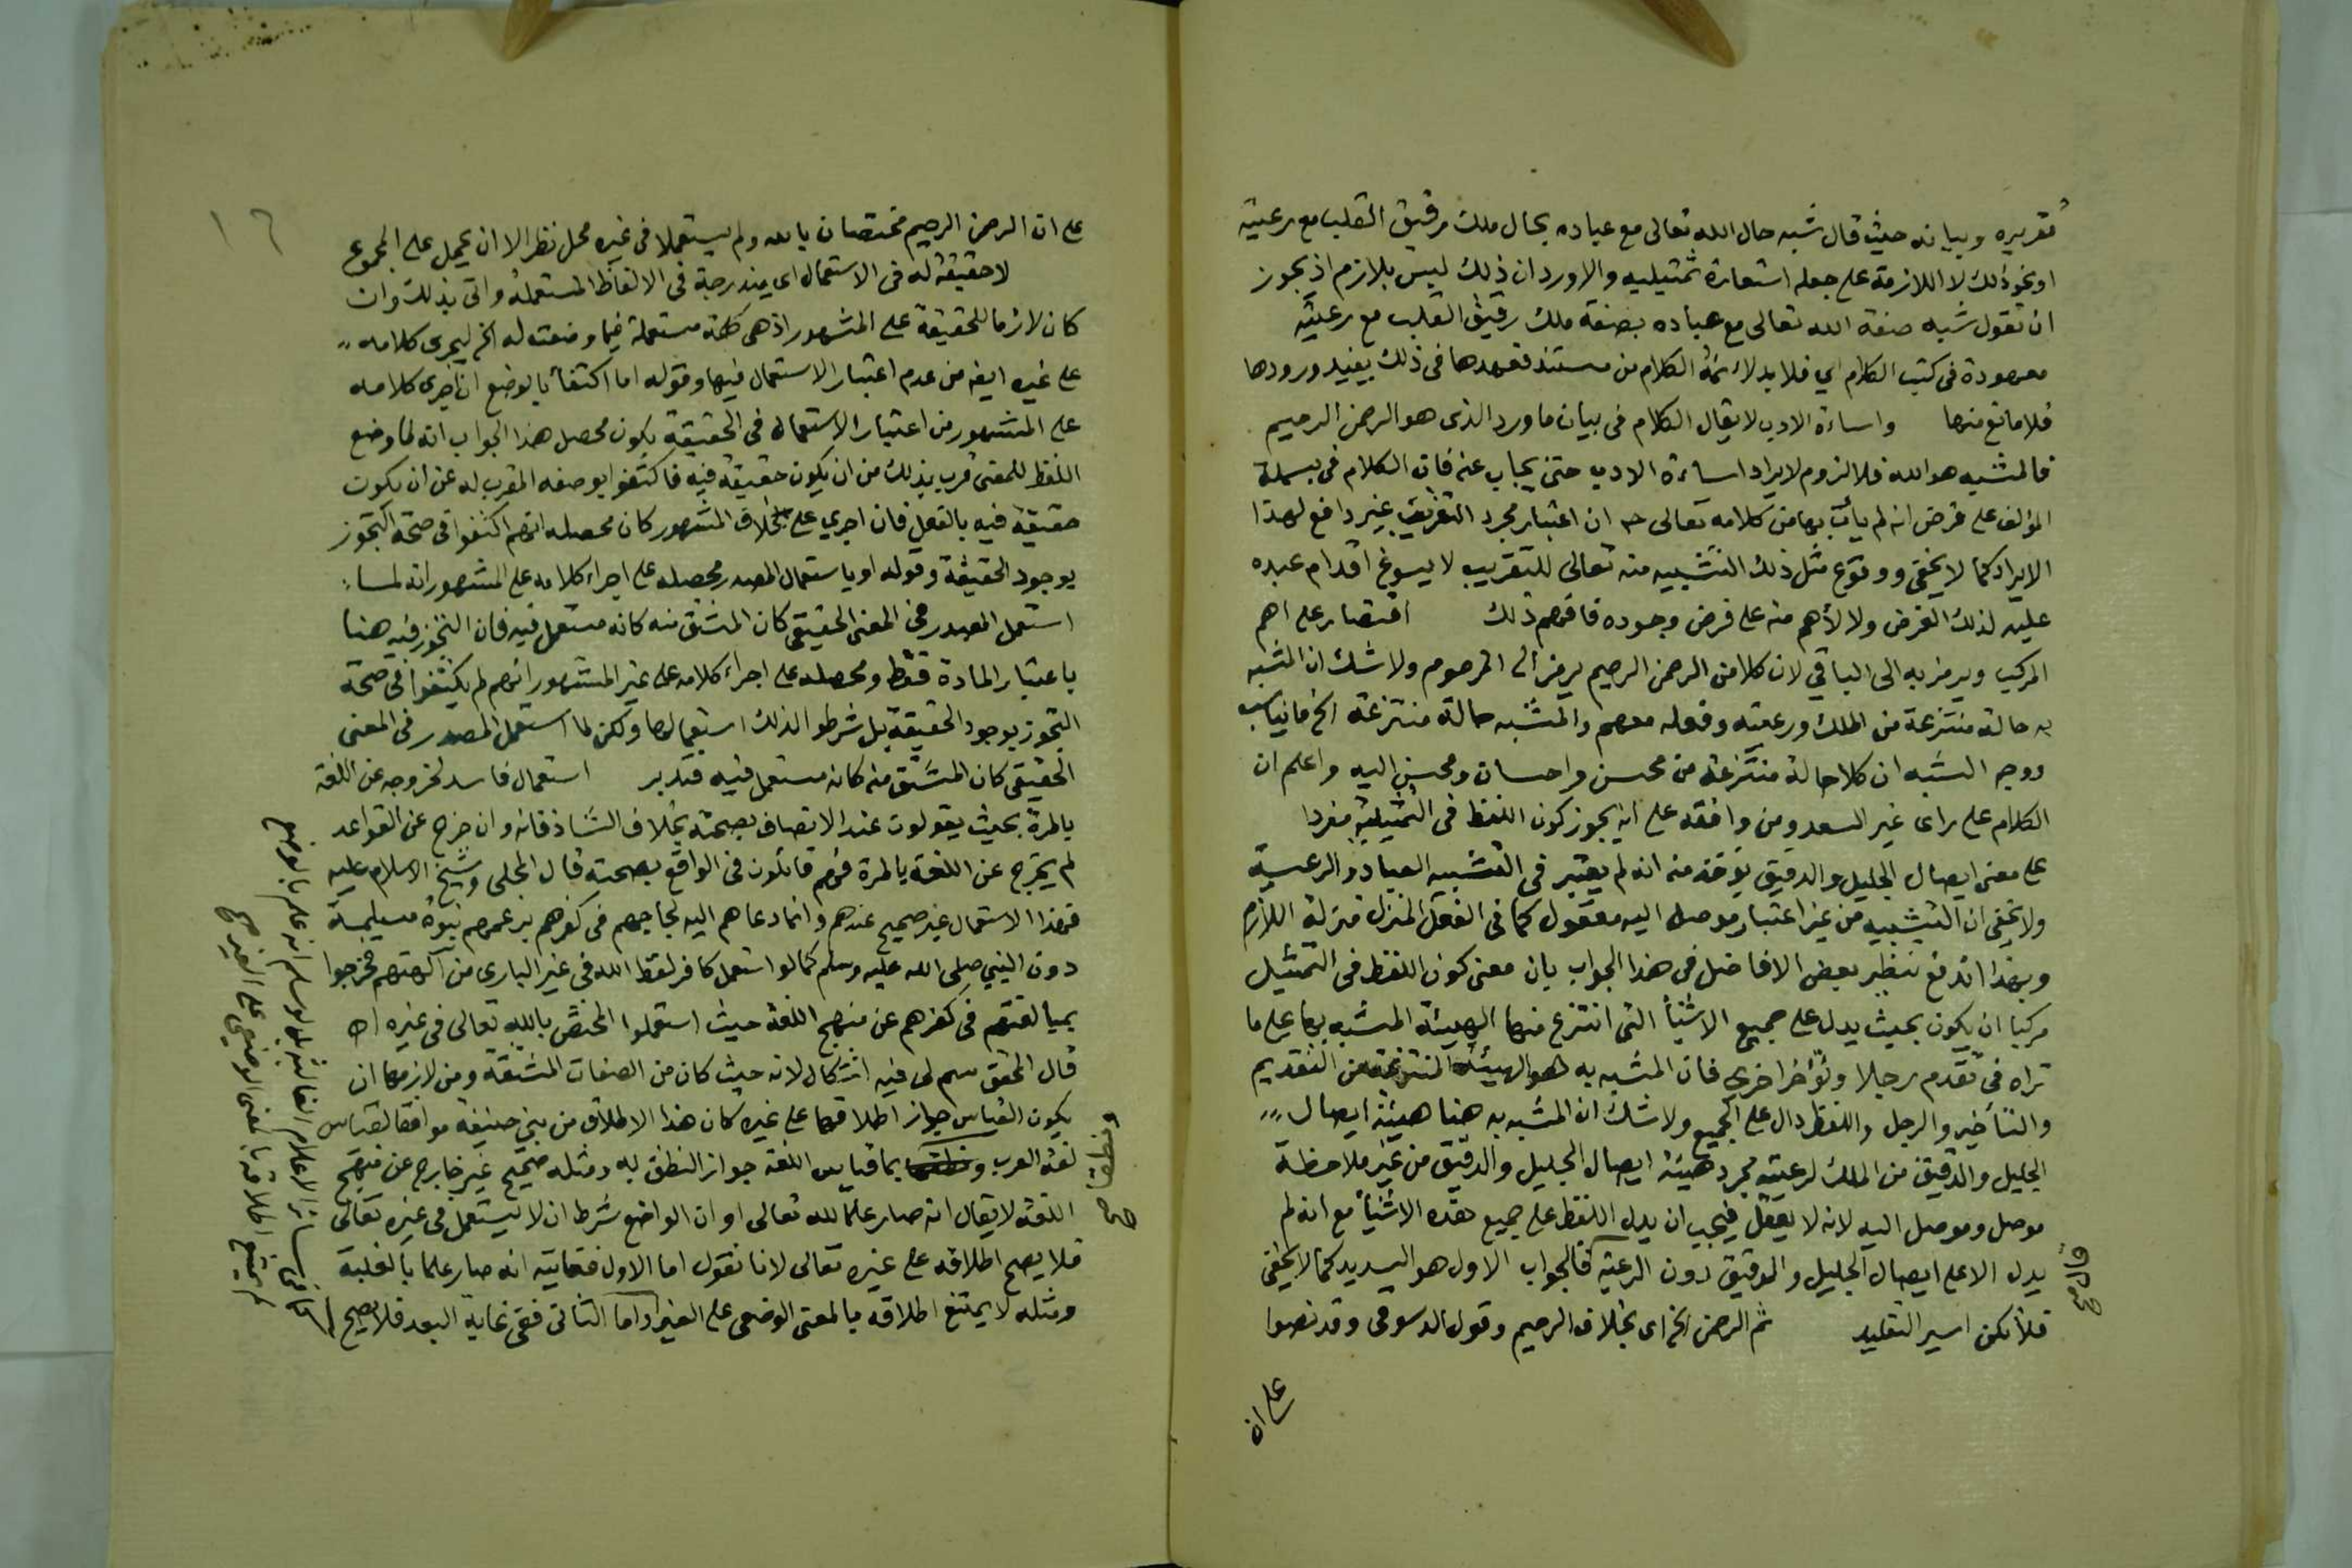 تقريره وبيانه حيث قال شبه حال الله تعالى مع عباده بحال ملك رقيق القلب مع رعيته
او نحو ذلك لا اللازمة على جعله استعارة تمثيلية والاورد ان ذلك ليس بلازم اذ يجوز
ان نقول شبه صفة الله تعالى مع عباده بصفة ملك رقيق القلب مع رعيته
معهودة في كتب الكلام اي فلا بد لائمة الكلام من مستند فعهدها في ذلك يفيد ورودها
فلا مانع منها واساءة الادب لا يقال الكلام في بيان ما ورد الذي هو الرحمن الرحيم
فالمشبه هو الله فلا لزوم لايراد اساءة الادب حتى يجاب عنه فان الكلام في بسملة
المؤلف على فرض انه لم يأت بها من كلامه تعالى ان اعتبار مجرد التقريب غير دافع لهذا
الايراد كما لا يخفى ووقوع مثل ذلك التشبيه منه تعالى للتقريب لا يسوغ اقدام عبده
عليه لذلك الغرض ولا لأهم منه على فرض وجوده فافهم ذلك اقتصار على اهم
المركب ويرمز به الى الباقي لان كلا من الرحمن الرحيم يرمز الى المرحوم ولا شك ان المشبه
به حالة منتزعة من الملك ورعيته وفعله معهم والمشبه حالة منتزعة الخ ما نياسب
ووجه الشبه ان كلا حالة منتزعة من محسن واحسان ومحسن اليه واعلم ان
الكلام على راى غير السعد ومن وافقه على انه يجوز كون اللفظ في التمثيلية مفردا
على معنى ايصال الجليل والدقيق يؤخذ منه انه لم يعتبر في التشبيه العباد والرعية
ولا يخفى ان التشبيه من غير اعتبار موصل اليه معقول كما في الفعل المنزل منزلة اللازم
وبهذا اندفع تنظير بعض الافاضل في هذا الجواب بان معنى كون اللفظ في التمثيل
مركبا ان يكون بحيث يدل على جميع الاشياء التي انتزع منها الهيئة المشبه بها على ما
تراه في تقدم رجلا وتؤخر اخرى فان المشبه به هو الهيئة المنتزعة من التقديم
والتأخير والرجل واللفظ دال على الجميع ولا شك ان المشبه به هنا هيئة ايصال
الجليل والدقيق من الملك لرعيته مجرد هيئة ايصال الجليل والدقيق من غير ملاحظة
موصل وموصل اليه لانه لا يعقل فيجب ان يدل اللفظ على جميع هذه الاشياء مع انه لم
يدل الا على ايصال الجليل والدقيق دون الرعية فالجواب الاول هو السديد كما لا يخفى
فلا تكن اسير التقليد ثم الرحمن الخ اى بخلاف الرحيم وقول الدسوقي وقد نصوا
على ان
١٦
على ان الرحمن الرحيم مختصان بالله ولم يستعملا في غيره محل نظر الا ان يحمل على المجموع
لا حقيقة له في الاستعمال اي مندرجة في الالفاظ المستعملة واتى بذلك وان
كان لازما للحقيقة على المشهور اذ هى كلمة مستعملة فيما وضعت له الخ ليجرى كلامه
على غيره ايضا من عدم اعتبار الاستعمال فيها وقوله اما اكتفأ بالوضع ان اجرى كلامه
على المشهور من اعتبار الاستعمال في الحقيقة يكون محصل هذا الجواب انه لما وضع
اللفظ للمعنى قرب بذلك من ان يكون حقيقة فيه فاكتفوا بوصفه المقرب له عن ان يكون
حقيقة فيه بالفعل فان اجرى على خلاف المشهور كان محصله انهم اكتفوا في صحة التجوز
بوجود الحقيقة وقوله او باستعمال المصدر محصله على اجراء كلامه على المشهور انه لما
استعمل المصدر في المعنى الحقيقى كان المشتق منه كانه مستعمل فيه فان التجوز فيه هنا
باعتبار المادة فقط ومحصله على اجراء كلامه على غير المشهور انهم لم يكتفوا في صحة
التجوز بوجود الحقيقة بل شرطوا لذلك استعمالها ولكن لما استعمل المصدر في المعنى
الحقيقى كان المشتق منه كانه مستعمل فيه فتدبر استعمال فاسد لخروجه عن اللغة
بالمرة بحيث يقولون عند الانصاف بصحته بخلاف الشاذ فانه وان خرج عن القواعد
لم يخرج عن اللغة بالمرة فهم قائلون في الواقع بصحته قال المحلى وشيخ الاسلام عليه
فهذا الاستعمال غير صحيح عندهم وانما دعاهم اليه لجاجهم في كفرهم بزعمهم نبوة مسيلمة
دون النبي صلى الله عليه وسلم كما لو استعمل كافر لفظ الله في غير البارى من آلهتهم فخرجوا
بمبالغتهم في كفرهم عن منهج اللغة حيث استعملوا المختص بالله تعالى في غيره اه
قال المحقق سم لى فيه اشكال لانه حيث كان من الصفات المشتقة ومن لازمها ان
يكون القياس جواز اطلاقها على غيره كان هذا الاطلاق من بني حنيفة موافقا لقياس
لغة العرب ونطقها بما قياس اللغة جواز النطق به ومثله صحيح غير خارج عن منهج
اللغة لا يقال انه صار علما لله تعالى او ان الواضع شرط ان لا يستعمل في غيره تعالى
فلا يصح اطلاقه على غيره تعالى لانا نقول اما الاول فغايته انه صار علما بالغلبة
ومثله لا يمتنع اطلاقه بالمعنى الوضعى على الغير واما الثاني ففي غاية البعد فلا يصح
ونطقا صح
كما في سائر الاعلام الغالبة بل لو سلم انه علم بالوضع
لم يمتنع اطلاقه بالمعنى الوضعى على الغير صح